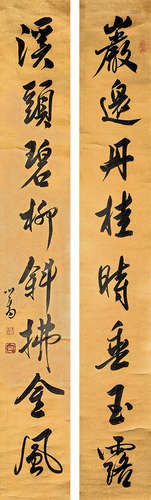 巖邊丹桂時垂玉露
溪頭碧柳斜拂金風
心畬